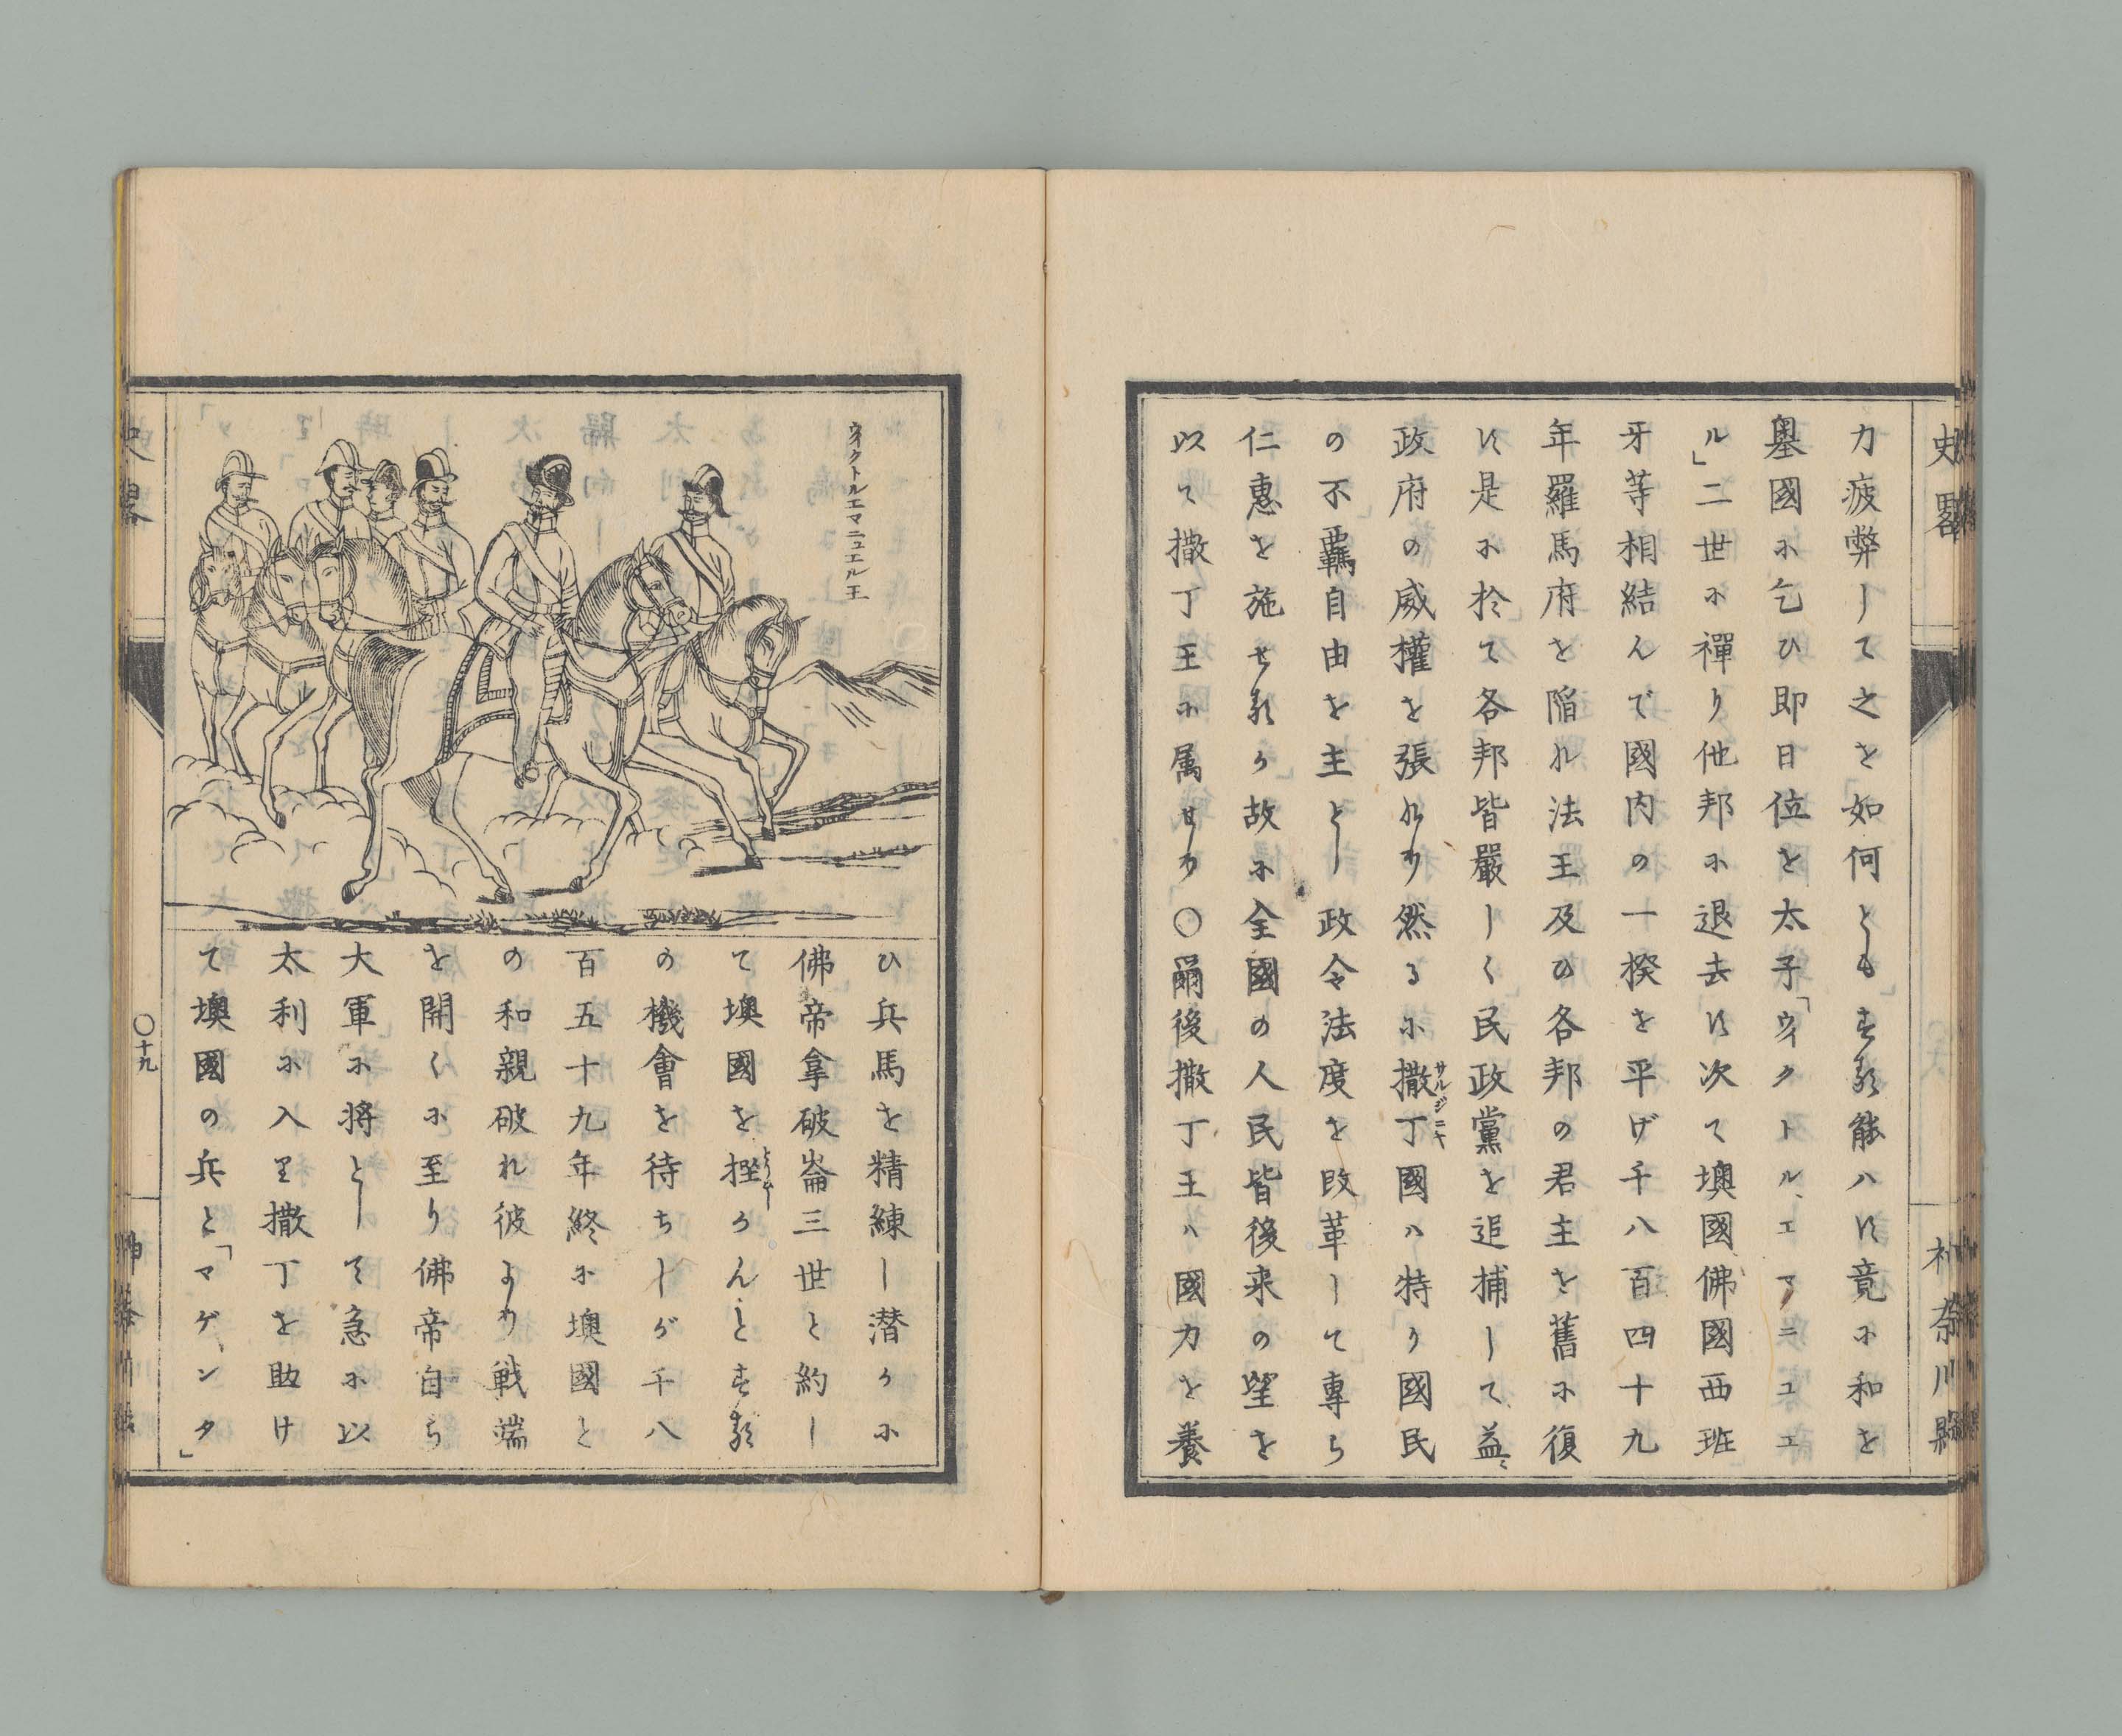 史畧
神奈川縣
力疲弊して之を如何ともする能ハず竟に和を
墺國に乞ひ即日位を太子「ウィクトル、エマニュエ
ル」二世に禪り他邦に退去す次て墺國佛國西班
牙等相結んで國内の一揆を平げ千八百四十九
年羅馬府を陥れ法王及ひ各邦の君主を舊に復
す是に於て各邦皆嚴しく民政黨を追捕して益々
政府の威權を張れり然るに撒丁國ハ特り國民
サルジニヤ
の不羈自由を主とし政令法度を改革して専ら
仁惠を施せるか故に全國の人民皆後来の望を
以て撒丁王に属せり〇爾後撒丁王ハ國力を養
ウイクトルエマニュエル王
ひ兵馬を精練し潜かに
佛帝拿破崙三世と約し
て墺國を挫かんとする
の機會を待ちしが千八
百五十九年終に墺國と
の和親破れ彼より戦端
を開くに至り佛帝自ら
大軍に将として急に以
太利に入り撒丁を助け
て墺國の兵と「マゲンタ」
史畧
〇十九